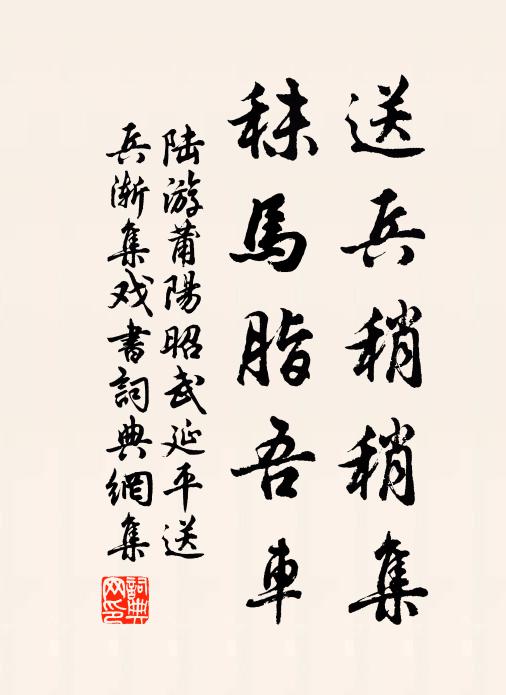 送兵稍稍集
秣馬脂吾車
陆游莆陽昭武延平送
兵渐集戏書詞典網集
詞典網印